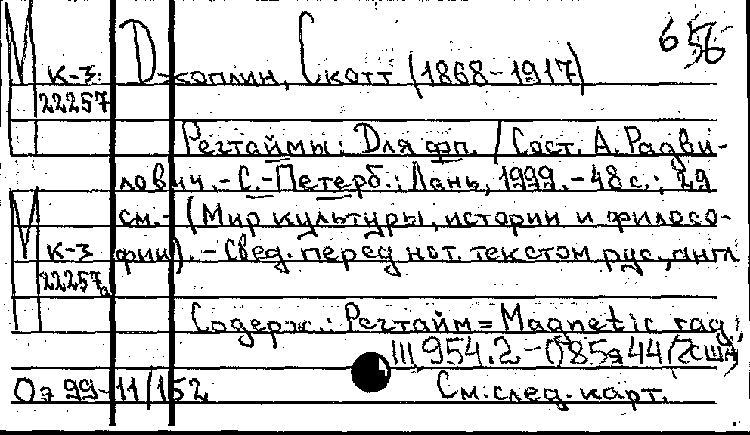 М
656
К-3
22257
Джоплин, Скотт (1868-1917)
Регтаймы: Для фп. / Сост. А. Радви-
лович. - С.-Петерб.: Лань, 1999. - 48 с.; 29
см. - (Мир культуры, истории и филосо-
М
К-3
22257а
фии). - Свед. перед нот. текстом рус., англ
Содерж.: Регтайм = Magnetic rag;
Ш 954.2-085я44(7США)
Оэ 99-11/152
См. след. карт.